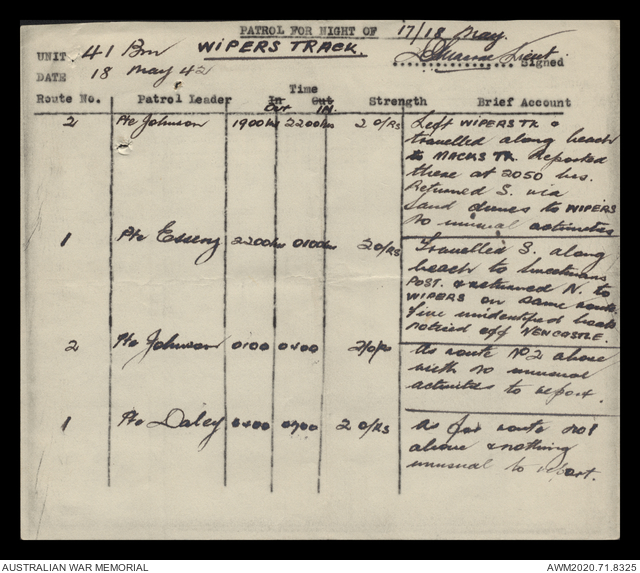 PATROL FOR NIGHT OF 17/18 May.
UNIT. 41 Bn WIPERS TRACK. Lieut Signed
DATE 18 May 42
Time
Route No. Patrol Leader In Out Strength Brief Account
Out In
2 Pte Johnson 1900hrs 2200hrs 2 O/Rs Left WIPERS TK &
travelled along beach
to MACKS TK. Reported
there at 2050 hrs.
Returned S. via
sand dunes to WIPERS
no unusual activities
1 Pte Esseny 2200hrs 0100hrs 2 O/Rs Travelled S. along
beach to
POST. & returned N. to
WIPERS on same route.
Five unidentified boats
noticed off NEWCASTLE.
2 Pte Johnson 0100 0400 2 O/Rs As route No 2 above
with no unusual
activities to report.
1 Pte Daley 0400 0700 2 O/Rs As for route No 1
above & nothing
unusual to report.
AUSTRALIAN WAR MEMORIAL AWM2020.71.8325